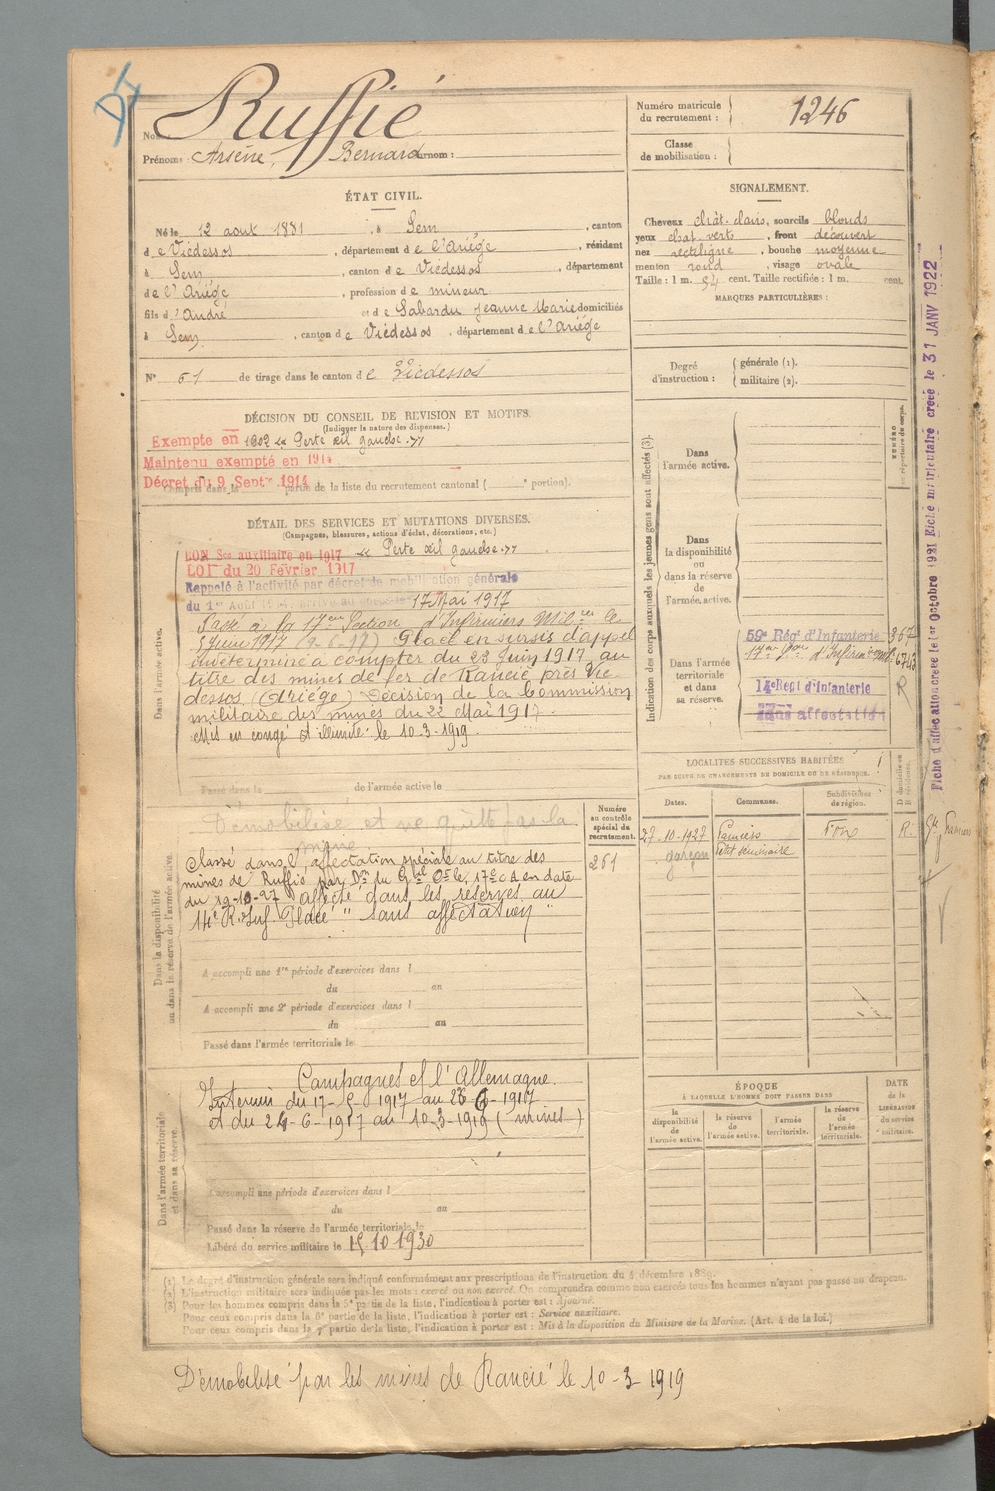 DI
Nom: Ruffié
Prénoms: Arsène, Bernard Surnom:
Numéro matricule du recrutement: 1246
Classe de mobilisation:
ÉTAT CIVIL.
Né le 12 aout 1881, à Sem, canton
de Vicdessos, département de l'Ariège, résidant
à Sem, canton de Vicdessos, département
de l'Ariège, profession de mineur
fils d'André et de Sabardu Jeanne Marie domiciliés
à Sem, canton de Vicdessos, département de l'Ariège
N° 61 de tirage dans le canton de Vicdessos
SIGNALEMENT.
Cheveux chât. clairs, sourcils blonds
yeux chat verts, front découvert
nez rectiligne, bouche moyenne
menton rond, visage ovale
Taille: 1 m. 54 cent. Taille rectifiée: 1 m. cent.
MARQUES PARTICULIÈRES:
Degré d'instruction: générale (1). militaire (2).
DÉCISION DU CONSEIL DE REVISION ET MOTIFS.
(Indiquer la nature des dispenses.)
Exempté en 1902 « Perte œil gauche »
Maintenu exempté en 1914
Décret du 9 Septre 1914
Compris dans la partie de la liste du recrutement cantonal ( e portion).
DÉTAIL DES SERVICES ET MUTATIONS DIVERSES.
(Campagnes, blessures, actions d'éclat, décorations, etc.)
Dans l'armée active.
BON Sce auxiliaire en 1917 « Perte œil gauche »
LOI du 20 Février 1917
Rappelé à l'activité par décret de mobilisation générale
du 1er Août 1914, arrivé au corps le 17 Mai 1917
Passé à la 17ème Section d'Infirmiers Milres le
Placé en sursis d'appel
indéterminé à compter du 23 Juin 1917 au
titre des mines de fer de Rancié près Vic
dessos (Ariége) Décision de la Commission
militaire des mines du 22 Mai 1917.
Mis en congé d'illimité le 10-3-1919
Passé dans la de l'armée active le
Numéro au contrôle spécial du recrutement.
261
Dans la disponibilité ou dans la réserve de l'armée active.
Démobilisé et ne quitte pas la
mine
Classé dans l'affectation spéciale au titre des
mines de Ruffié par Dn du Gal
du 19-10-27 affecté dans les réserves au
14e R. Inf. Placé "sans affectation"
A accompli une 1re période d'exercices dans l
du au
A accompli une 2e période d'exercices dans l
du au
Passé dans l'armée territoriale le
Dans l'armée territoriale et dans sa réserve.
Campagnes
l'Allemagne.
Intérieur du 17-5-1917 au 23-6-1917
et du 24-6-1917 au 10-3-1919 (mines)
A accompli une période d'exercices dans l
du au
Passé dans la réserve de l'armée territoriale le
Libéré du service militaire le 15 10 1930
Indication des corps auxquels les jeunes gens sont affectés (3).
NUMÉRO au répertoire du corps.
Dans l'armée active.
Dans la disponibilité ou dans la réserve de l'armée active.
Dans l'armée territoriale et dans sa réserve.
59e Rég. d'Infanterie
14e Regt d'Infanterie R
Sans affectation
LOCALITÉS SUCCESSIVES HABITÉES
PAR SUITE DE CHANGEMENTS DE DOMICILE OU DE RÉSIDENCE.
Dates. Communes. Subdivisions de région. D domicile ou R résidence.
27-10-1927 Pamiers Foix R
garçon Petit séminaire
ÉPOQUE
À LAQUELLE L'HOMME DOIT PASSER DANS
la disponibilité de l'armée active.
la réserve de l'armée active.
l'armée territoriale.
la réserve de l'armée territoriale.
DATE de la LIBÉRATION du service militaire.
Fiche d'affectation créée le 1er Octobre 1921 Fiche matriculaire créée le 31 JANV 1922
(1) Le degré d'instruction générale sera indiqué conformément aux prescriptions de l'instruction du 4 décembre 1889.
(2) L'instruction militaire sera indiquée par les mots: exercé ou non exercé. On comprendra comme non exercés tous les hommes n'ayant pas passé au drapeau.
(3) Pour les hommes compris dans la 5e partie de la liste, l'indication à porter est: Ajourné.
Pour ceux compris dans la 6e partie de la liste, l'indication à porter est: Service auxiliaire.
Pour ceux compris dans la 7e partie de la liste, l'indication à porter est: Mis à la disposition du Ministre de la Marine. (Art. 4 de la loi.)
Démobilisé par les mines de Rancié le 10-3-1919